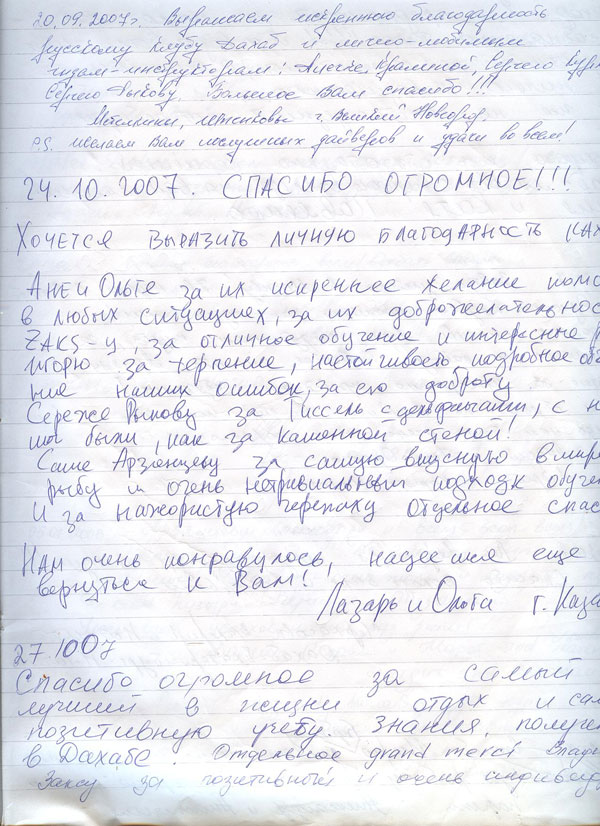 20.09.2007г. Выражаем искреннюю благодарность
русскому клубу Дахаб и лично любимым
гидам-инструкторам: Анечке, Сергею
Сергею Рыкову. Большое Вам спасибо!!!
г. Великий Новгород.
P.S. желаем Вам послушных дайверов и удачи во всем!
24.10.2007. СПАСИБО ОГРОМНОЕ!!!
Хочется выразить личную благодарность
Ане и Ольге за их искреннее желание помо
в любых ситуациях, за их доброжелательнос
ZAKS-у, за отличное обучение и интересные
Игорю за терпение, настойчивость подробное об
ние наших ошибок, за его доброту
Сереже Рыкову за Тиссель с дельфинами, с н
ми были, как за каменной стеной!
Саше Арзюнцеву за самую вкусную в мир
рыбу и очень нетривиальный подход к обуче
И за нажористую черепаху отдельное спас
Нам очень понравилось, надеемся еще
вернуться к Вам!
Лазарь и Ольга г. Каза
27.10.07
Спасибо огромное за самый
лучший в жизни отдых и сам
позитивную учёбу. Знания, получе
в Дахабе. Отдельное grand merci Влади
Заксу за позитивный и очень индивиду